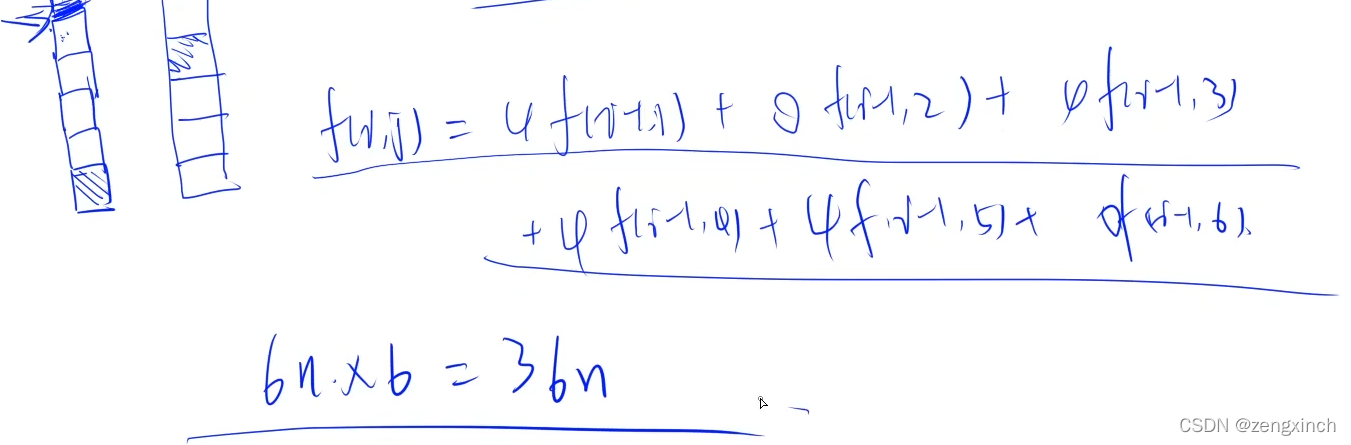 f(i,j) = 4 f(i-1,1) + 0 f(i-1,2) + 4 f(i-1,3)
+ 4 f(i-1,4) + 4 f(i-1,5) + 0f(i-1,6).
6n × 6 = 36n
CSDN @zengxinch